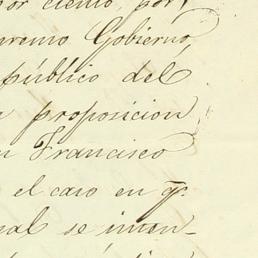 por ciento, por
upremo Gobierno,
público del
proposicion
n Francisco
el caso en q.e
nal se inten-